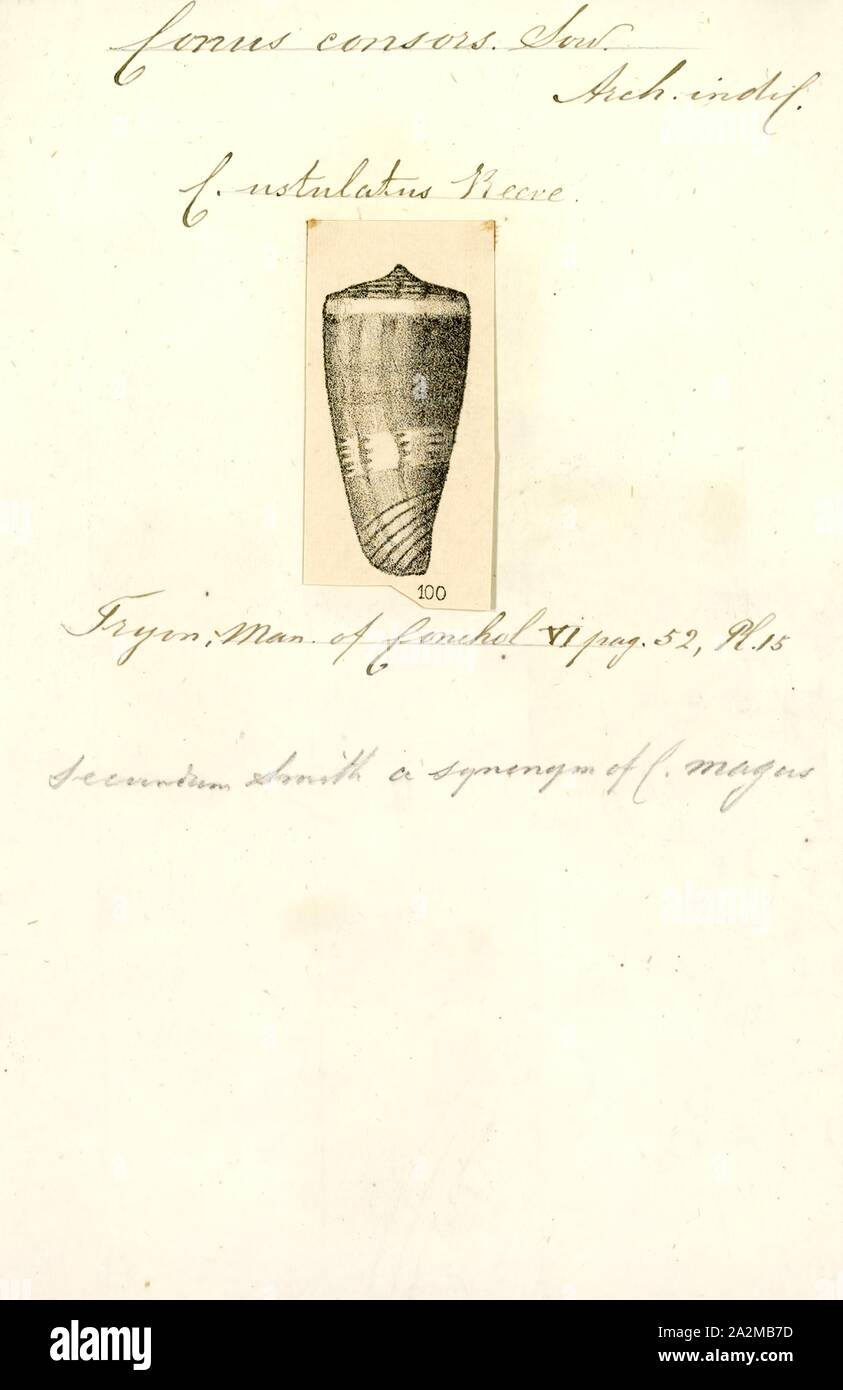 Conus consors. Sow.
Arch. indic.
C. ustulatus Reeve.
100
Tryon; Man. of Conchol VI pag. 52, Pl. 15
secundum Smith a synonym of C. magus
alamy
Image ID: 2A2MB7D
www.alamy.com